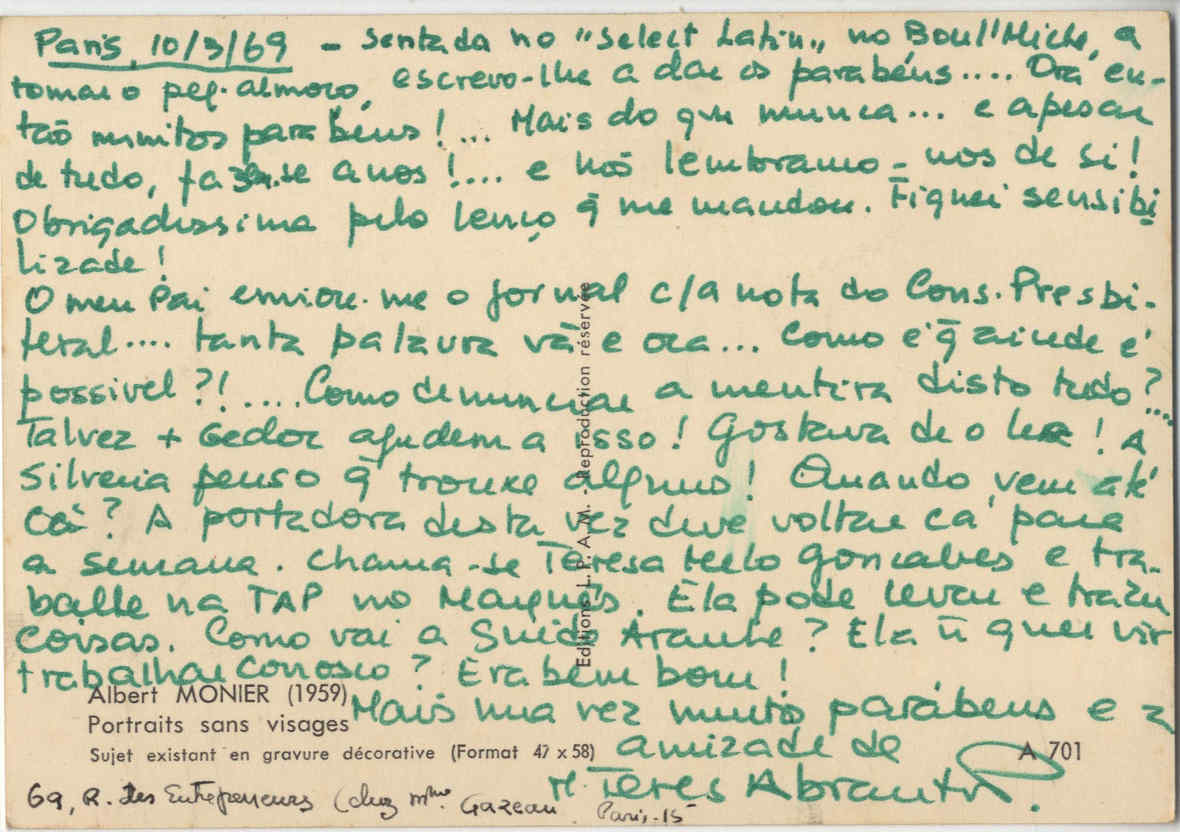 Paris, 10/3/69 - sentada no "Select Latin" no Boul'Mich, a
tomar o peq. almoço, escrevo-lhe a dar os parabéns.... Ora en-
tão muitos parabéns!... Mais do que nunca... e apesar
de tudo, faz-se anos!.... e nós lembramo-nos de si!
Obrigadissima pelo lenço q̄ me mandou. Fiquei sensibi
lizada!
O meu Pai enviou-me o jornal c/a nota do Cons. Presbi-
teral.... tanta palavra vã e oca... Como é q̄ ainda é
possivel?!.....Como denunciar a mentira disto tudo?....
Talvez + Gedoc ajudem a isso! Gostava de o ler! A
Silveria penso q̄ trouxe alguns! Quando vem até
cá? A portadora desta vez deve voltar cá para
a semana. Chama-se Teresa Mello Gonçalves e tra-
balha na TAP no Marquês. Ela pode levar e trazer
coisas. Como vai a Guida? Ela ñ quer vir
trabalhar conosco? Era bem bom!
Mais uma vez muitos parabens e a
amizade de
M. Teres Abrantes.
Albert MONIER (1959)
Portraits sans visages
Sujet existant en gravure décorative (Format 47 x 58)
A 701
69, R. des Entrepreneurs (chez Mme Gazeau Paris-15
Editions L. P. A. M. - Reproduction réservée